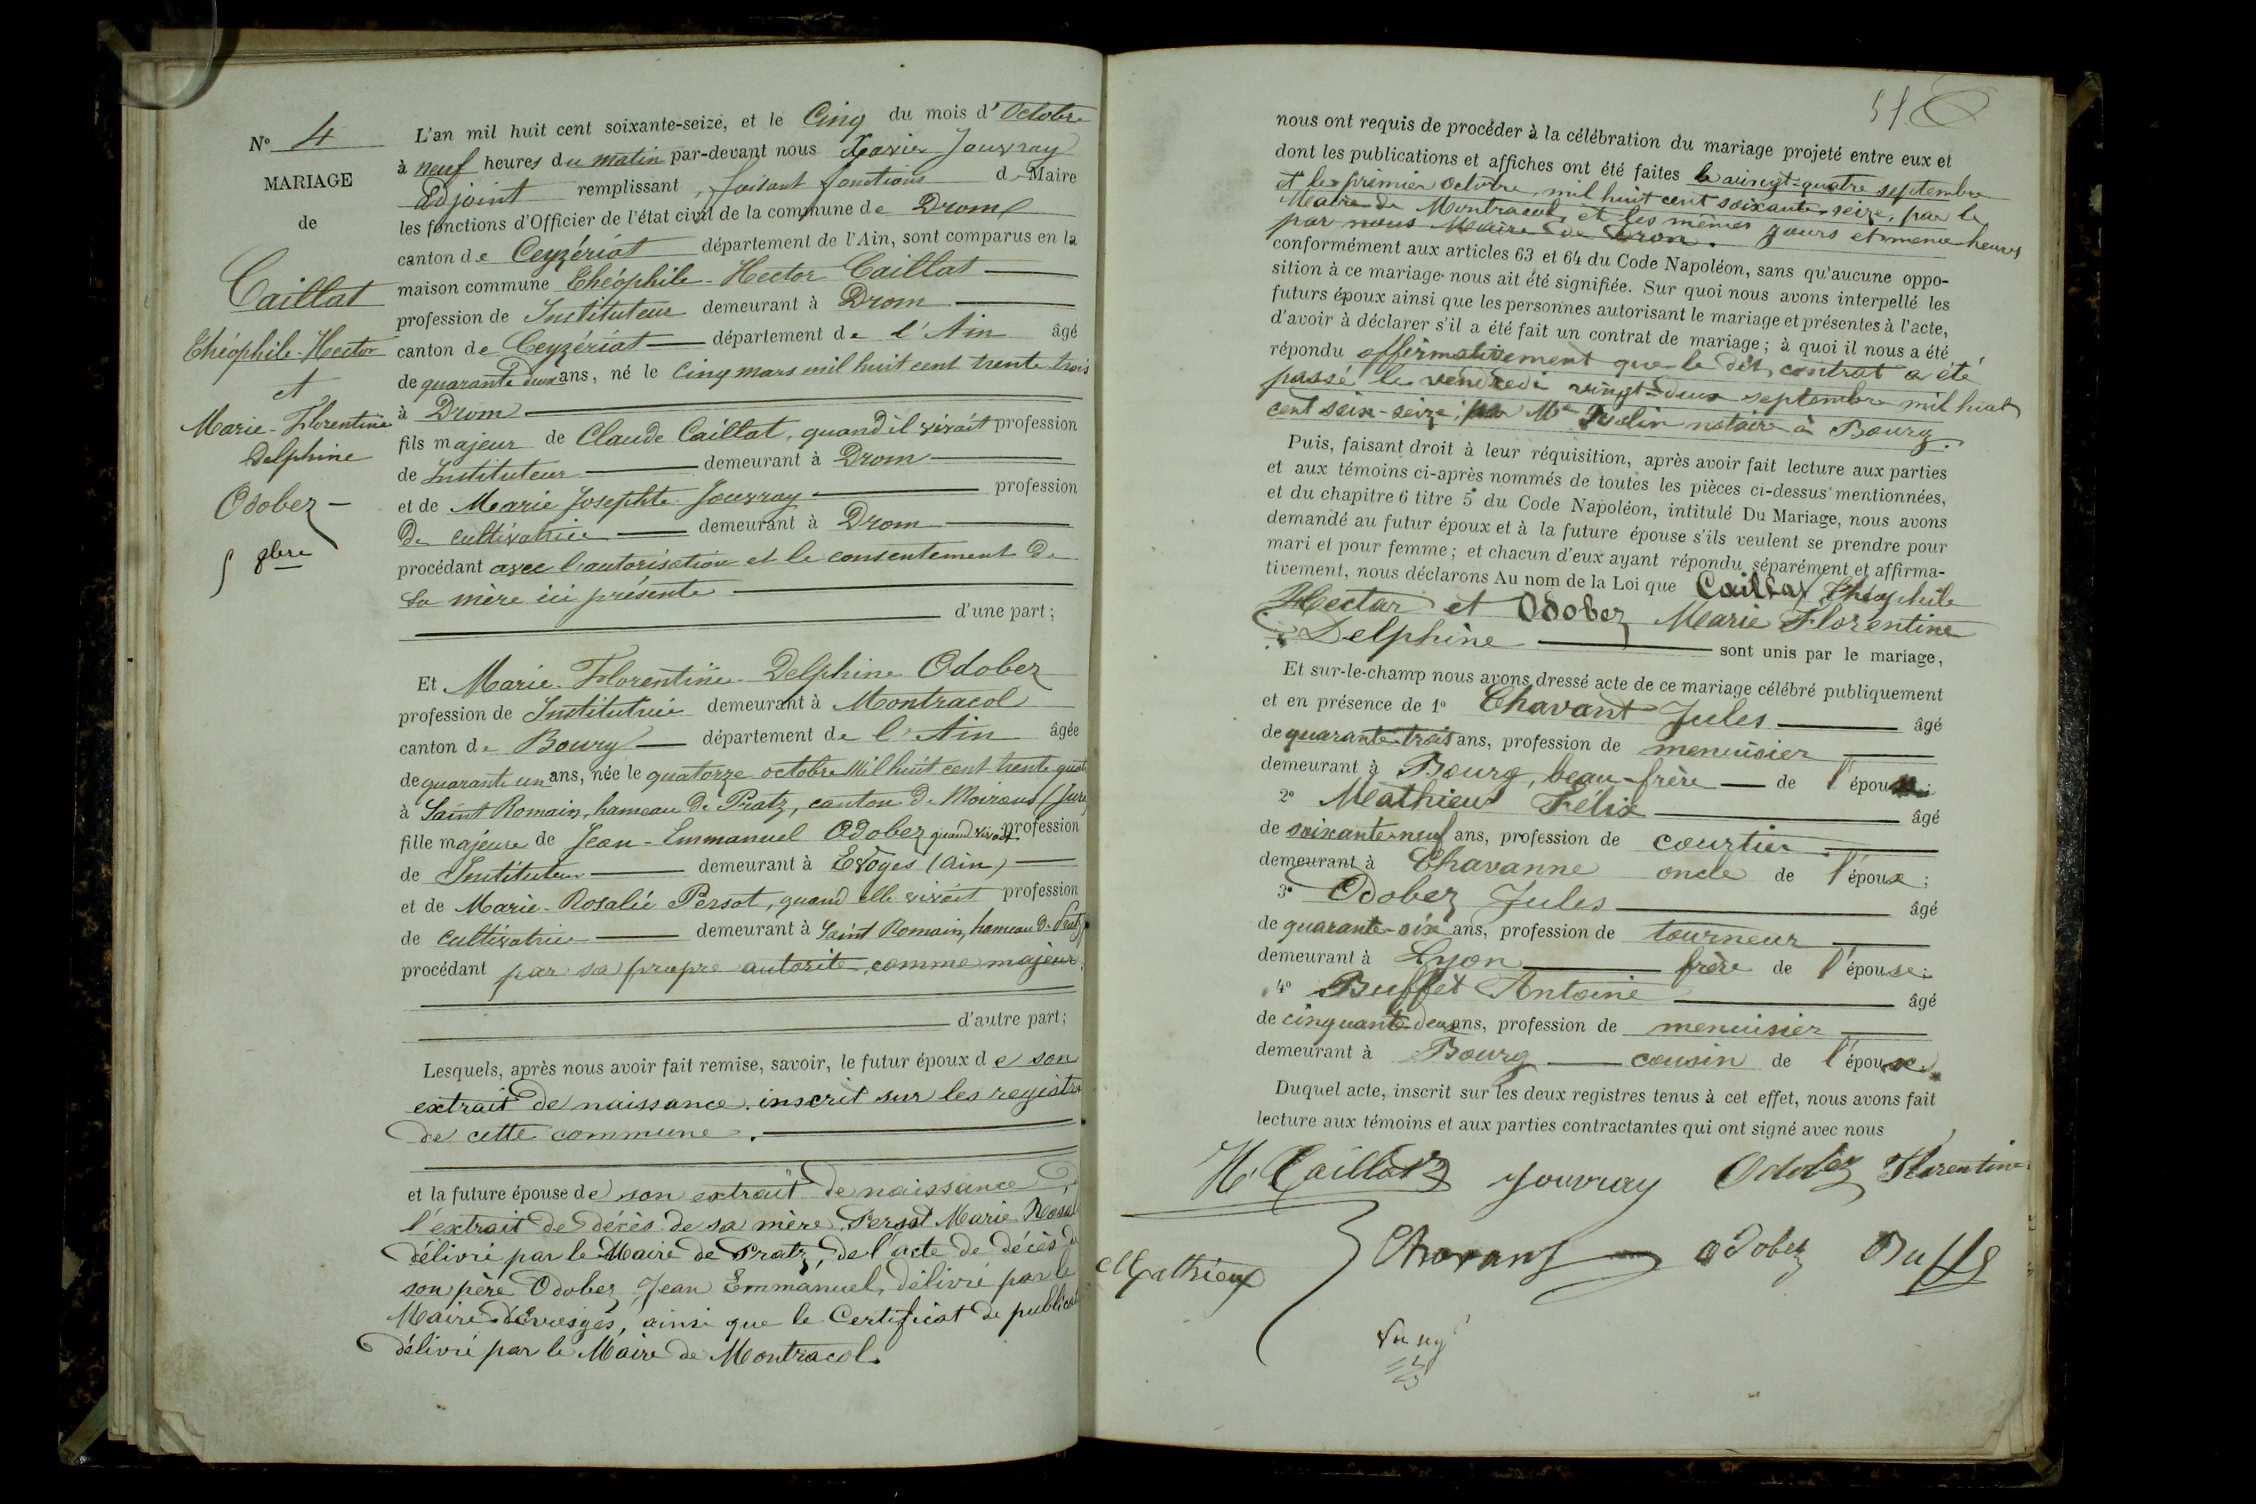 N° 4
MARIAGE
de
Caillat
Théophile-Hector
et
Marie-Florentine
Delphine
Odobez
5 8bre
L'an mil huit cent soixante-seize, et le Cinq du mois d'Octobre
à neuf heures du matin par-devant nous Xavier Jouvray
adjoint remplissant, faisant fonctions de Maire
les fonctions d'Officier de l'état civil de la commune de Drom
canton de Ceyzériat département de l'Ain, sont comparus en la
maison commune Théophile-Hector Caillat
profession de Instituteur demeurant à Drom
canton de Ceyzériat département de l'Ain âgé
de quarante deux ans, né le cinq mars mil huit cent trente trois
à Drom
fils majeur de Claude Caillat, quand il vivait profession
de Instituteur demeurant à Drom
et de Marie Josephte Jouvray profession
de cultivatrice demeurant à Drom
procédant avec l'autorisation et le consentement de
sa mère ici présente
d'une part;
Et Marie-Florentine-Delphine Odobez
profession de Institutrice demeurant à Montracol
canton de Bourg département de l'Ain âgée
de quarante un ans, née le quatorze octobre mil huit cent trente quatre
à Saint Romain, hameau de Pratz, canton de Moirans (Jura)
fille majeure de Jean-Emmanuel Odobez quand vivait profession
de Instituteur demeurant à Evoges (Ain)
et de Marie-Rosalie Persot, quand elle vivait profession
de cultivatrice demeurant à Saint Romain, hameau de Pratz
procédant par sa propre autorité, comme majeur
d'autre part;
Lesquels, après nous avoir fait remise, savoir, le futur époux de son
extrait de naissance inscrit sur les registres
de cette commune.
et la future épouse de son extrait de naissance,
l'extrait de décès de sa mère Persot Marie Rosalie
délivré par le Maire de Pratz, de l'acte de décès de
son père Odobez Jean Emmanuel, délivré par le
Maire d'Evosges, ainsi que le Certificat de publication
délivré par le Maire de Montracol.
nous ont requis de procéder à la célébration du mariage projeté entre eux et
dont les publications et affiches ont été faites le vingt-quatre septembre
et le premier octobre mil huit cent soixante-seize, par le
Maire de Montracol, et les mêmes jours et même heures
par nous Maire de Drom.
conformément aux articles 63 et 64 du Code Napoléon, sans qu'aucune oppo-
sition à ce mariage nous ait été signifiée. Sur quoi nous avons interpellé les
futurs époux ainsi que les personnes autorisant le mariage et présentes à l'acte,
d'avoir à déclarer s'il a été fait un contrat de mariage; à quoi il nous a été
répondu affirmativement que le dit contrat a été
passé le vendredi vingt-deux septembre mil huit
cent soix-seize, par Me notaire à Bourg.
Puis, faisant droit à leur réquisition, après avoir fait lecture aux parties
et aux témoins ci-après nommés de toutes les pièces ci-dessus mentionnées,
et du chapitre 6 titre 5 du Code Napoléon, intitulé Du Mariage, nous avons
demandé au futur époux et à la future épouse s'ils veulent se prendre pour
mari et pour femme; et chacun d'eux ayant répondu séparément et affirma-
tivement, nous déclarons Au nom de la Loi que Caillat Théophile
Hector et Odobez Marie Florentine
Delphine sont unis par le mariage,
Et sur-le-champ nous avons dressé acte de ce mariage célébré publiquement
et en présence de 1° Chavant Jules âgé
de quarante-trois ans, profession de menuisier
demeurant à Bourg, beau-frère de l'épouse;
2° Mathieu Félix âgé
de soixante-neuf ans, profession de courtier
demeurant à Chavanne oncle de l'époux;
3° Odobez Jules âgé
de quarante-six ans, profession de tourneur
demeurant à Lyon frère de l'épouse;
4° Buffet Antoine âgé
de cinquante-deux ans, profession de menuisier
demeurant à Bourg cousin de l'épouse.
Duquel acte, inscrit sur les deux registres tenus à cet effet, nous avons fait
lecture aux témoins et aux parties contractantes qui ont signé avec nous
H. Caillat Jouvray Odobez Florentine
Mathieu Chavant Odobez Buffet